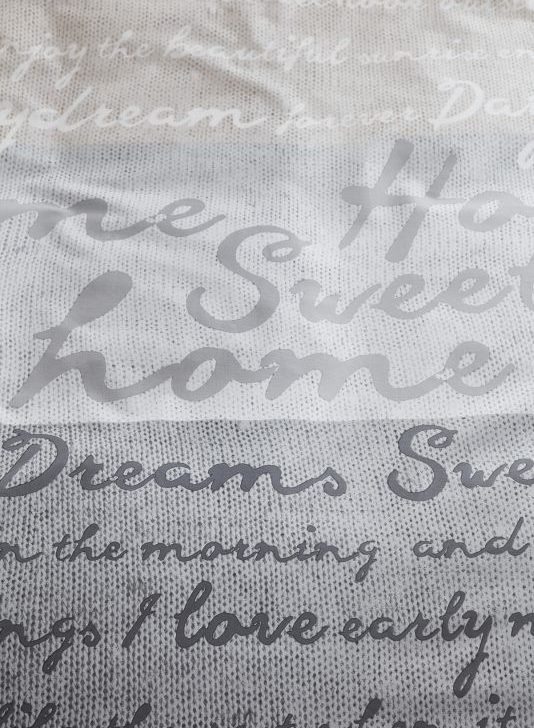 enjoy the beautiful sunrise
daydream forever Da
me Ho
Sweet
home
Dreams Swe
n the morning and
ngs I love early